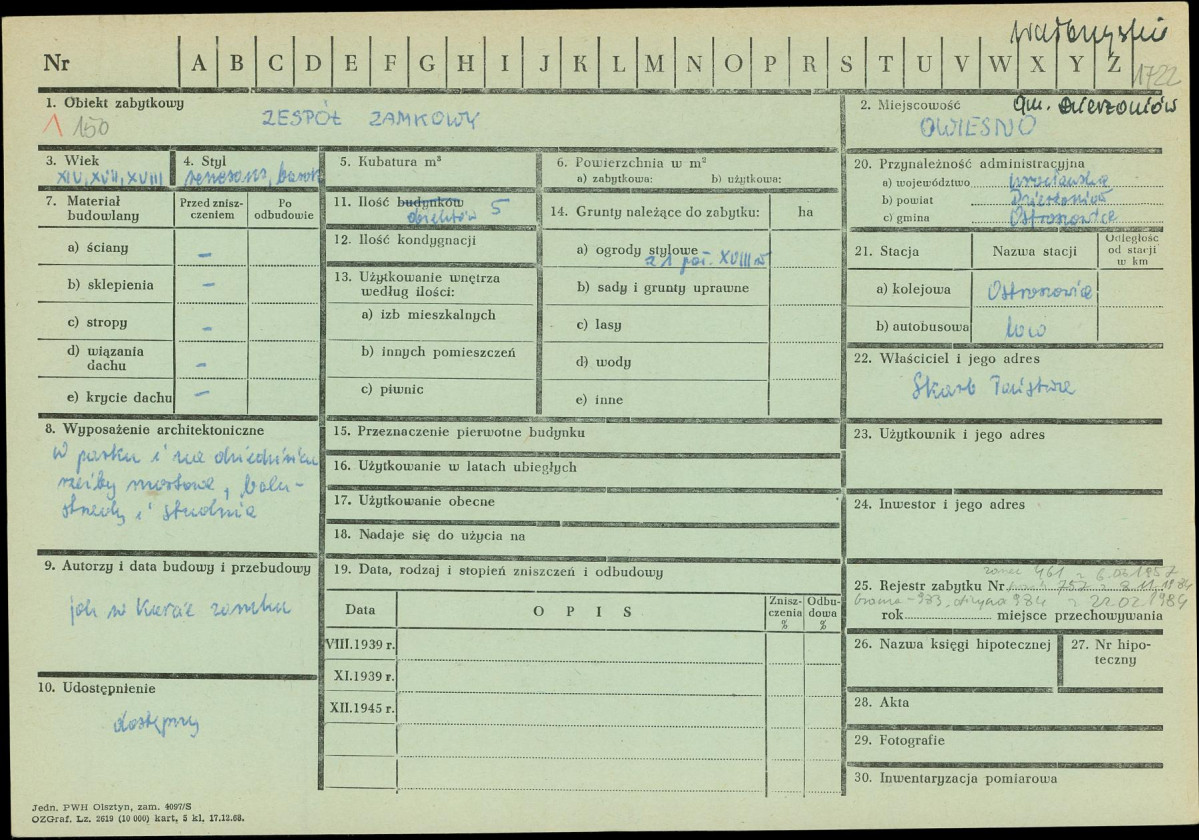 wałbrzyskie
Nr A B C D E F G H I J K L M N O P R S T U V W X Y Z 1722
1. Obiekt zabytkowy
1 150
ZESPÓŁ ZAMKOWY
2. Miejscowość gm. Dzierżoniów
OWIESNO
3. Wiek
XIV, XVII, XVIII
4. Styl
renesans, barok
5. Kubatura m³
6. Powierzchnia w m²
a) zabytkowa: b) użytkowa:
7. Materiał budowlany
Przed zniszczeniem
Po odbudowie
a) ściany –
b) sklepienia –
c) stropy –
d) wiązania dachu –
e) krycie dachu –
8. Wyposażenie architektoniczne
W parku i na dziedzińcu
rzeźby mostowe, balu-
strady i studnia
9. Autorzy i data budowy i przebudowy
jak w karcie zamku
10. Udostępnienie
dostępny
11. Ilość budynków 5
obiektów
12. Ilość kondygnacji
13. Użytkowanie wnętrza według ilości:
a) izb mieszkalnych
b) innych pomieszczeń
c) piwnic
14. Grunty należące do zabytku: ha
a) ogrody stylowe
z 1 poł. XVIII w
b) sady i grunty uprawne
c) lasy
d) wody
e) inne
15. Przeznaczenie pierwotne budynku
16. Użytkowanie w latach ubiegłych
17. Użytkowanie obecne
18. Nadaje się do użycia na
19. Data, rodzaj i stopień zniszczeń i odbudowy
Data O P I S Zniszczenia % Odbudowa %
VIII.1939 r.
XI.1939 r.
XII.1945 r.
20. Przynależność administracyjna
a) województwo wrocławskie
b) powiat Dzierżoniów
c) gmina Ostroszowice
21. Stacja Nazwa stacji Odległość od stacji w km
a) kolejowa Ostroszowice
b) autobusowa
22. Właściciel i jego adres
Skarb Państwa
23. Użytkownik i jego adres
24. Inwestor i jego adres
zamek 461 z 6.03.1957
25. Rejestr zabytku Nr 757 z 8.11.1984
brama - 983, oficyna 984 z 22.02.1984
rok miejsce przechowywania
26. Nazwa księgi hipotecznej
27. Nr hipoteczny
28. Akta
29. Fotografie
30. Inwentaryzacja pomiarowa
Jedn. PWH Olsztyn, zam. 4097/S
OZGraf. Lz. 2619 (10 000) kart, 5 kl. 17.12.68.